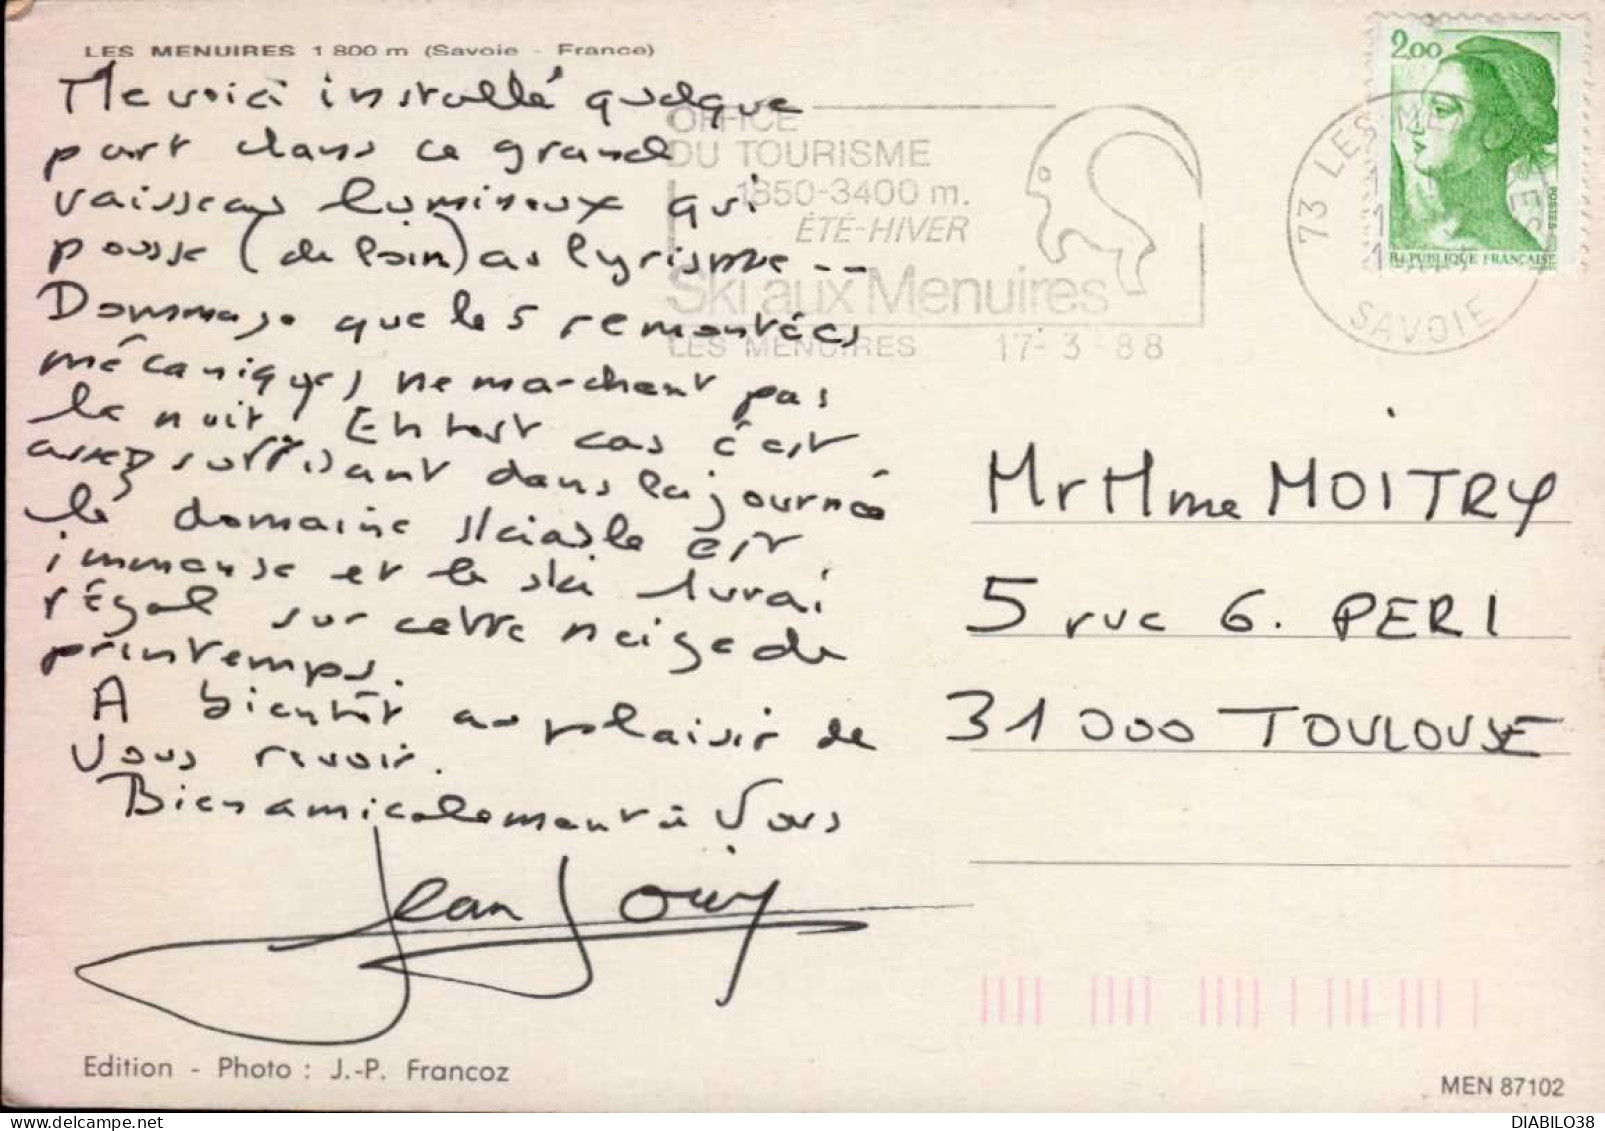 LES MENUIRES 1 800 m (Savoie - France)
Me voici installé quelque
part dans ce grand
vaisseau lumineux qui
pousse (de loin) au lyrisme --
Dommage que les remontées
mécaniques ne marchent pas
la nuit! En tout cas c'est
assez suffisant dans la journée
le domaine skiable est
immense et le ski 1 vrai
régal sur cette neige de
printemps.
A bientôt au plaisir de
vous revoir.
Bien amicalement à Vous
Jean Jouy
Edition - Photo : J.-P. Francoz
OFFICE
DU TOURISME
1850-3400 m.
ÉTÉ-HIVER
Ski aux Menuires
LES MENUIRES 17-3 88
2,00
POSTES
REPUBLIQUE FRANÇAISE
73 LES MENUIRES
SAVOIE
Mr Mme MOITRY
5 rue G. PERI
31000 TOULOUSE
MEN 87102
DIABILO38